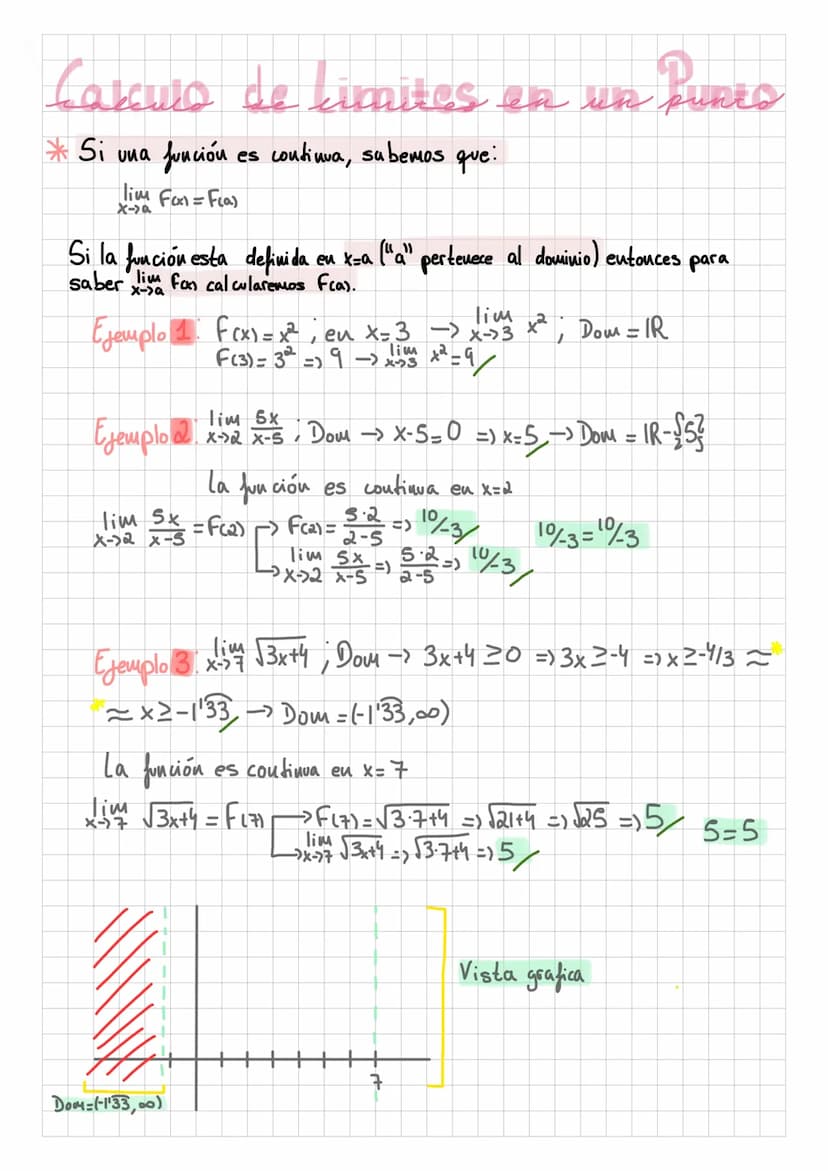 Calculo de Limites en un Punto
* Si una función es continua, sabemos que:
lim x→a F(x) = F(a)
Si la función esta definida en x=a ("a" pertenece al dominio) entonces para
saber lim x→a f(x) calcularemos F(a).
Ejemplo 1: F(x) = x² ; en x=3 → lim x→3 x² ; Dom = IR
F(3) = 3² => 9 → lim x→3 x² = 9
Ejemplo 2: lim x→2 5x/x-5 ; Dom → x-5=0 => x=5 → Dom = IR-{5}
La función es continua en x=2
lim x→2 5x/x-5 = F(2) → F(2) = 5·2/2-5 => 10/-3 10/-3 = 10/-3
→ lim x→2 5x/x-5 => 5·2/2-5 => 10/-3
Ejemplo 3: lim x→7 √3x+4 ; Dom → 3x+4 ≥ 0 => 3x ≥ -4 => x ≥ -4/3 ≈ *
* ≈ x ≥ -1'33 → Dom = (-1'33, ∞)
La función es continua en x=7
lim x→7 √3x+4 = F(7) → F(7) = √3·7+4 => √21+4 => √25 => 5 5=5
→ lim x→7 √3x+4 => √3·7+4 => 5
Vista grafica
7
Dom=(-1'33, ∞)